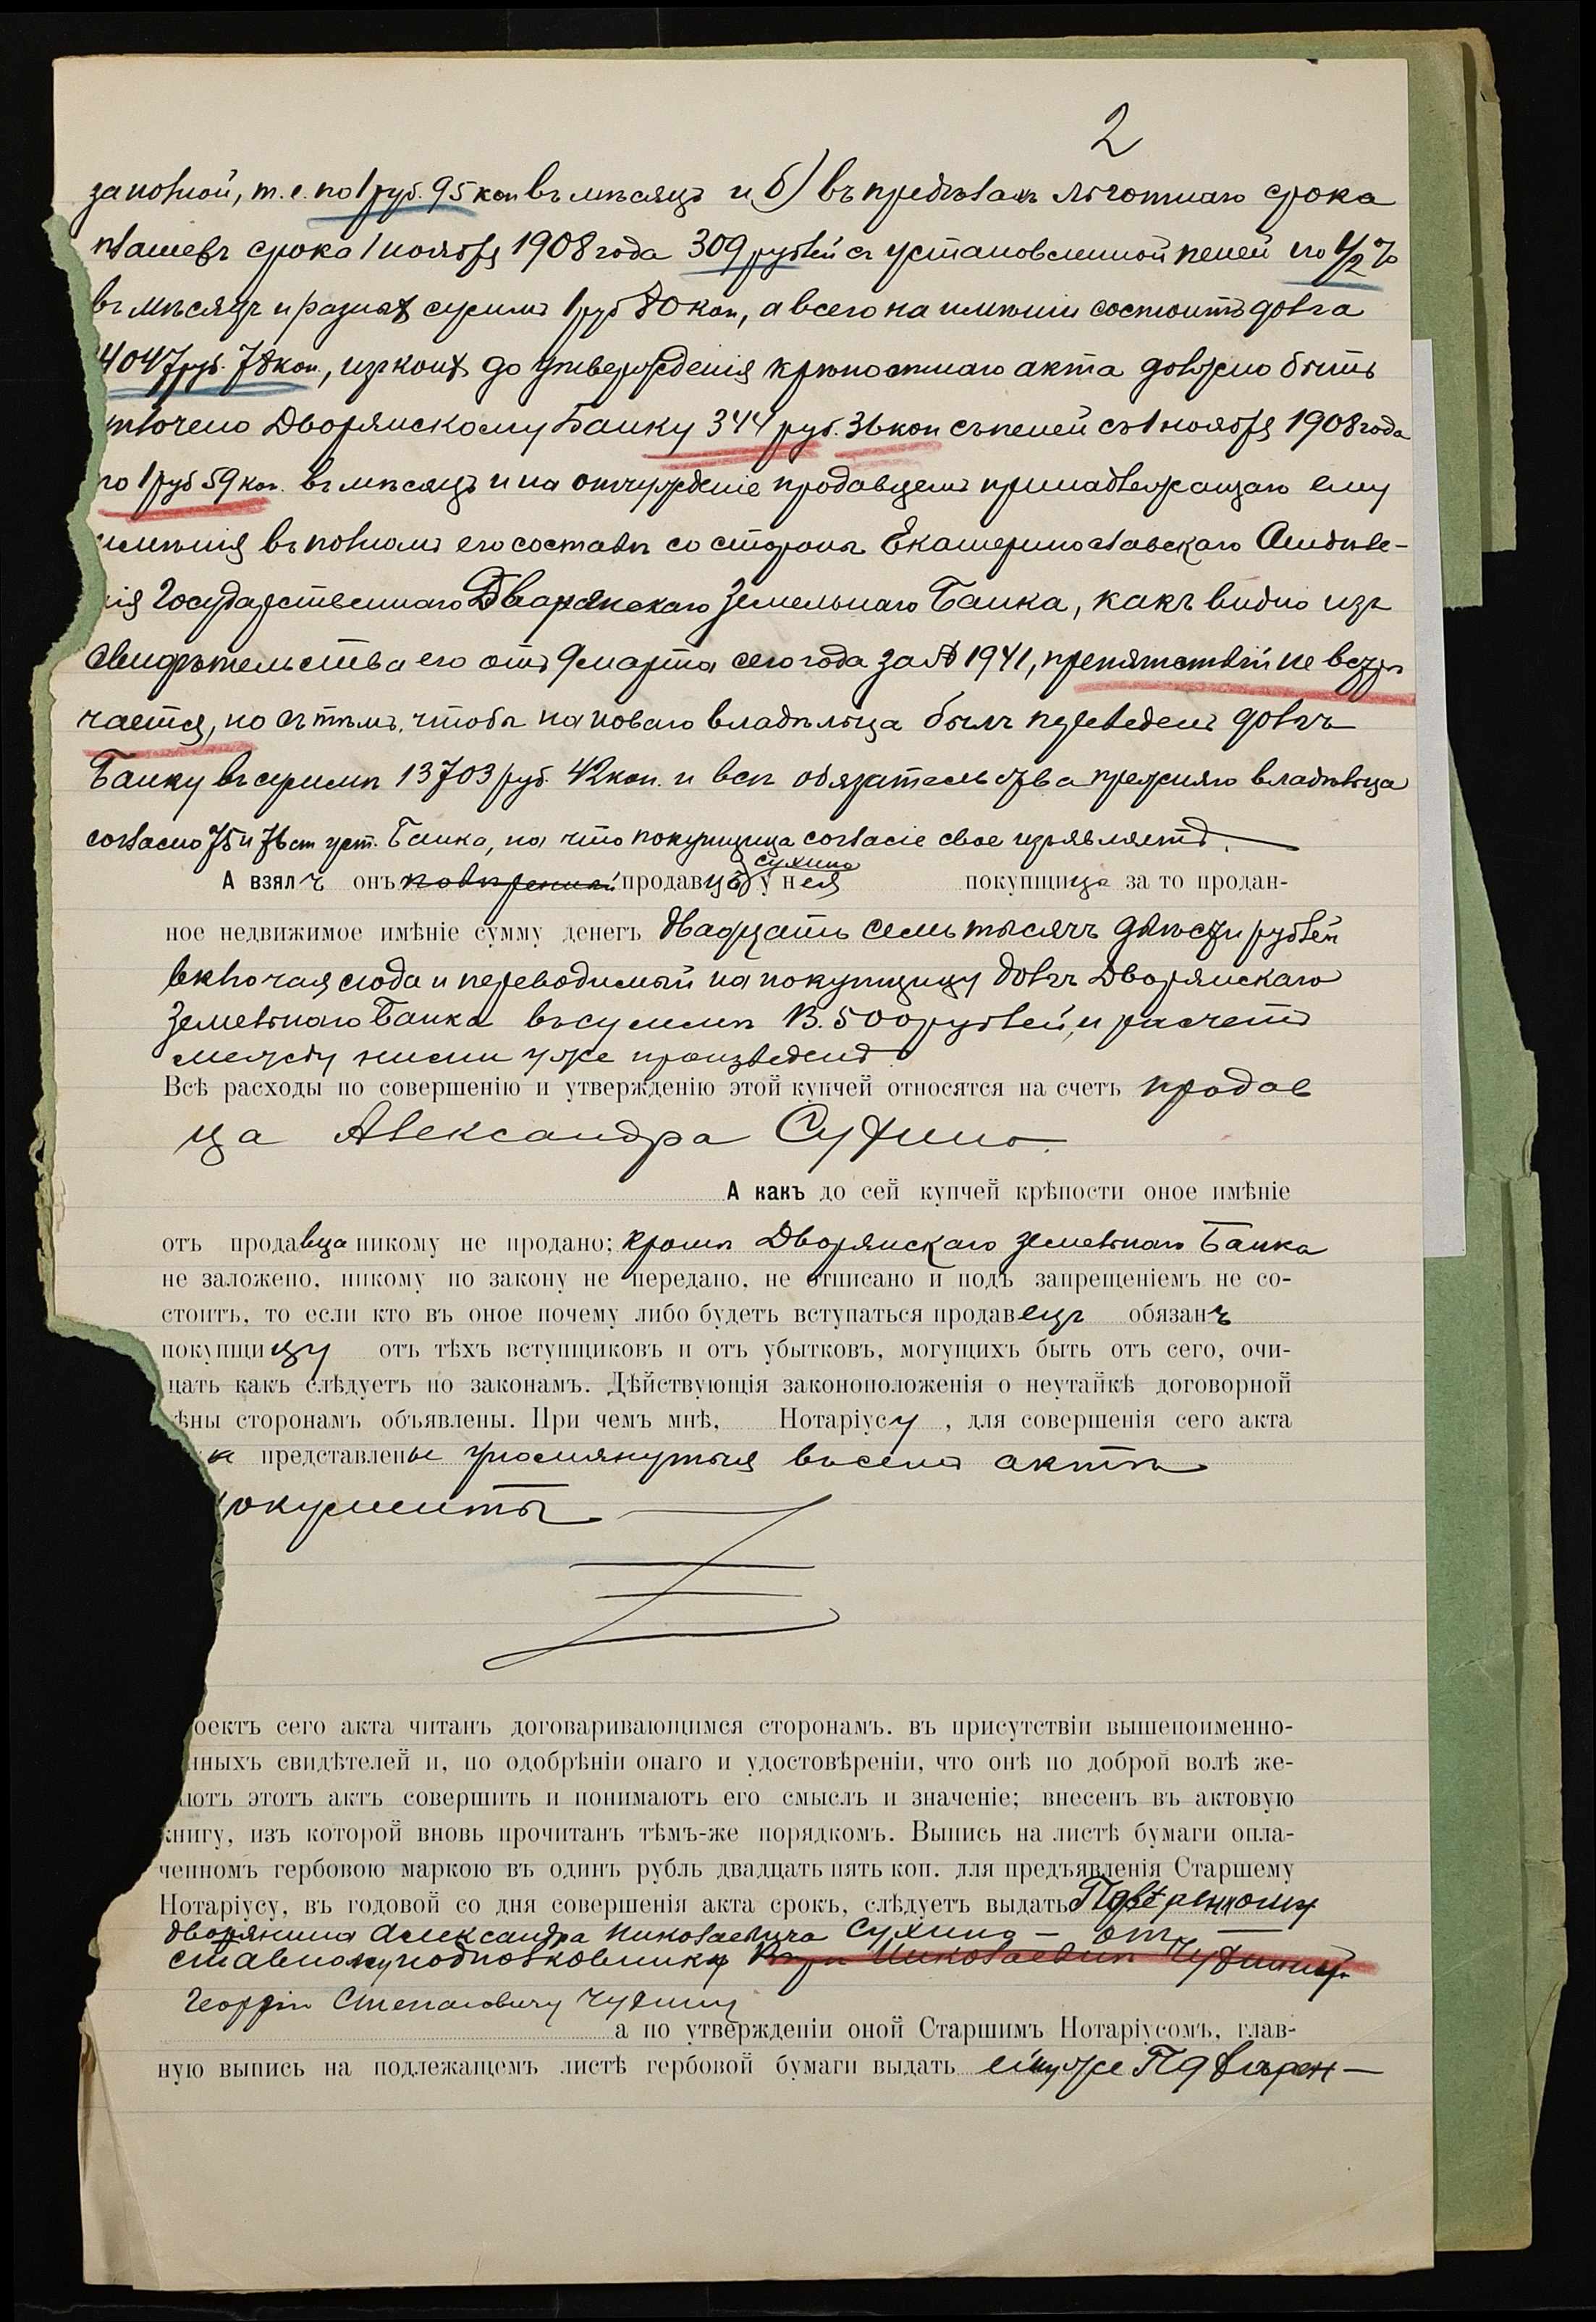 2
за полной, т. е. по 1 руб. 95 коп въ мѣсяцъ и б) въ предѣлахъ льготнаго срока
платежъ срока 1 ноября 1908 года 309 рублей съ установленной пеней по 1/2 %
въ мѣсяцъ и разныхъ суммъ 1 руб 80 коп, а всего на имѣніи состоитъ долга
14047 руб. 78 коп., изъ коихъ до утвержденія крѣпостнаго акта должно быть
плочено Дворянскому Банку 344 руб. 36 коп съ пеней съ 1 ноября 1908 года
по 1 руб 59 коп. въ мѣсяцъ и на отчужденіе продавцемъ принадлежащаго ему
имѣнія въ полномъ его составѣ со стороны Екатеринославскаго Отдѣле-
нія Государственнаго Дворянскаго Земельнаго Банка, какъ видно изъ
свидѣтельства его отъ 9 марта сего года за № 1941, препятствій не встрѣ
чается, но съ тѣмъ, чтобы на новаго владѣльца былъ переведенъ долгъ
Банку въ суммѣ 13703 руб. 42 коп. и всѣ обязательства прежняго владѣльца
согласно 75 и 76 ст уст. Банка, на что покупщица согласіе свое изъявляетъ.
Сухино
А взялъ онъ повѣренный продавцъ у нея покупщица за то продан-
ное недвижимое имѣніе сумму денегъ двадцать семь тысячъ двѣсти рублей
включая сюда и переводимый на покупщицу долгъ Дворянскаго
Земельнаго Банка въ суммѣ 13.500 рублей, и расчетъ
между ними уже произведенъ.
Всѣ расходы по совершенію и утвержденію этой купчей относятся на счетъ продав
ца Александра Сухино.
А какъ до сей купчей крѣпости оное имѣніе
отъ продавца никому не продано; кромѣ Дворянскаго Земельнаго Банка
не заложено, никому по закону не передано, не отписано и подъ запрещеніемъ не со-
стоитъ, то если кто въ оное почему либо будетъ вступаться продавецъ обязанъ
покупщицу отъ тѣхъ вступщиковъ и отъ убытковъ, могущихъ быть отъ сего, очи-
щать какъ слѣдуетъ по законамъ. Дѣйствующія законоположенія о неутайкѣ договорной
ѣны сторонамъ объявлены. При чемъ мнѣ, Нотаріусу, для совершенія сего акта
представлены упомянутыя въ семъ актѣ
окументы.
оектъ сего акта читанъ договаривающимся сторонамъ. въ присутствіи вышепоименно-
нныхъ свидѣтелей и, по одобрѣніи онаго и удостовѣреніи, что онѣ по доброй волѣ же-
аютъ этотъ актъ совершить и понимаютъ его смыслъ и значеніе; внесенъ въ актовую
книгу, изъ которой вновь прочитанъ тѣмъ-же порядкомъ. Выпись на листѣ бумаги опла-
ченномъ гербовою маркою въ одинъ рубль двадцать пять коп. для предъявленія Старшему
Нотаріусу, въ годовой со дня совершенія акта срокъ, слѣдуетъ выдать Повѣренному
дворянина Александра Николаевича Сухино – от-
ставному подполковнику Николаевичу
Георгію Степановичу Чухину
а по утвержденіи оной Старшимъ Нотаріусомъ, глав-
ную выпись на подлежащемъ листѣ гербовой бумаги выдать ему же Повѣрен-